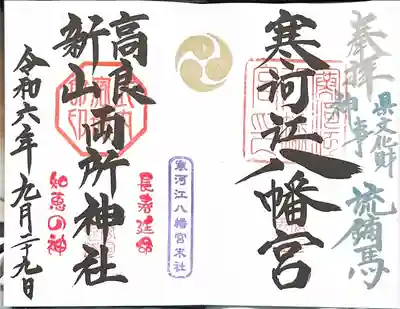 奉拝
県文化財
神事
流鏑馬
寒河江八幡宮
寒河江八幡宮末社
長寿延命
高良
新山
両所神社
知恵の神
令和六年九月二十九日